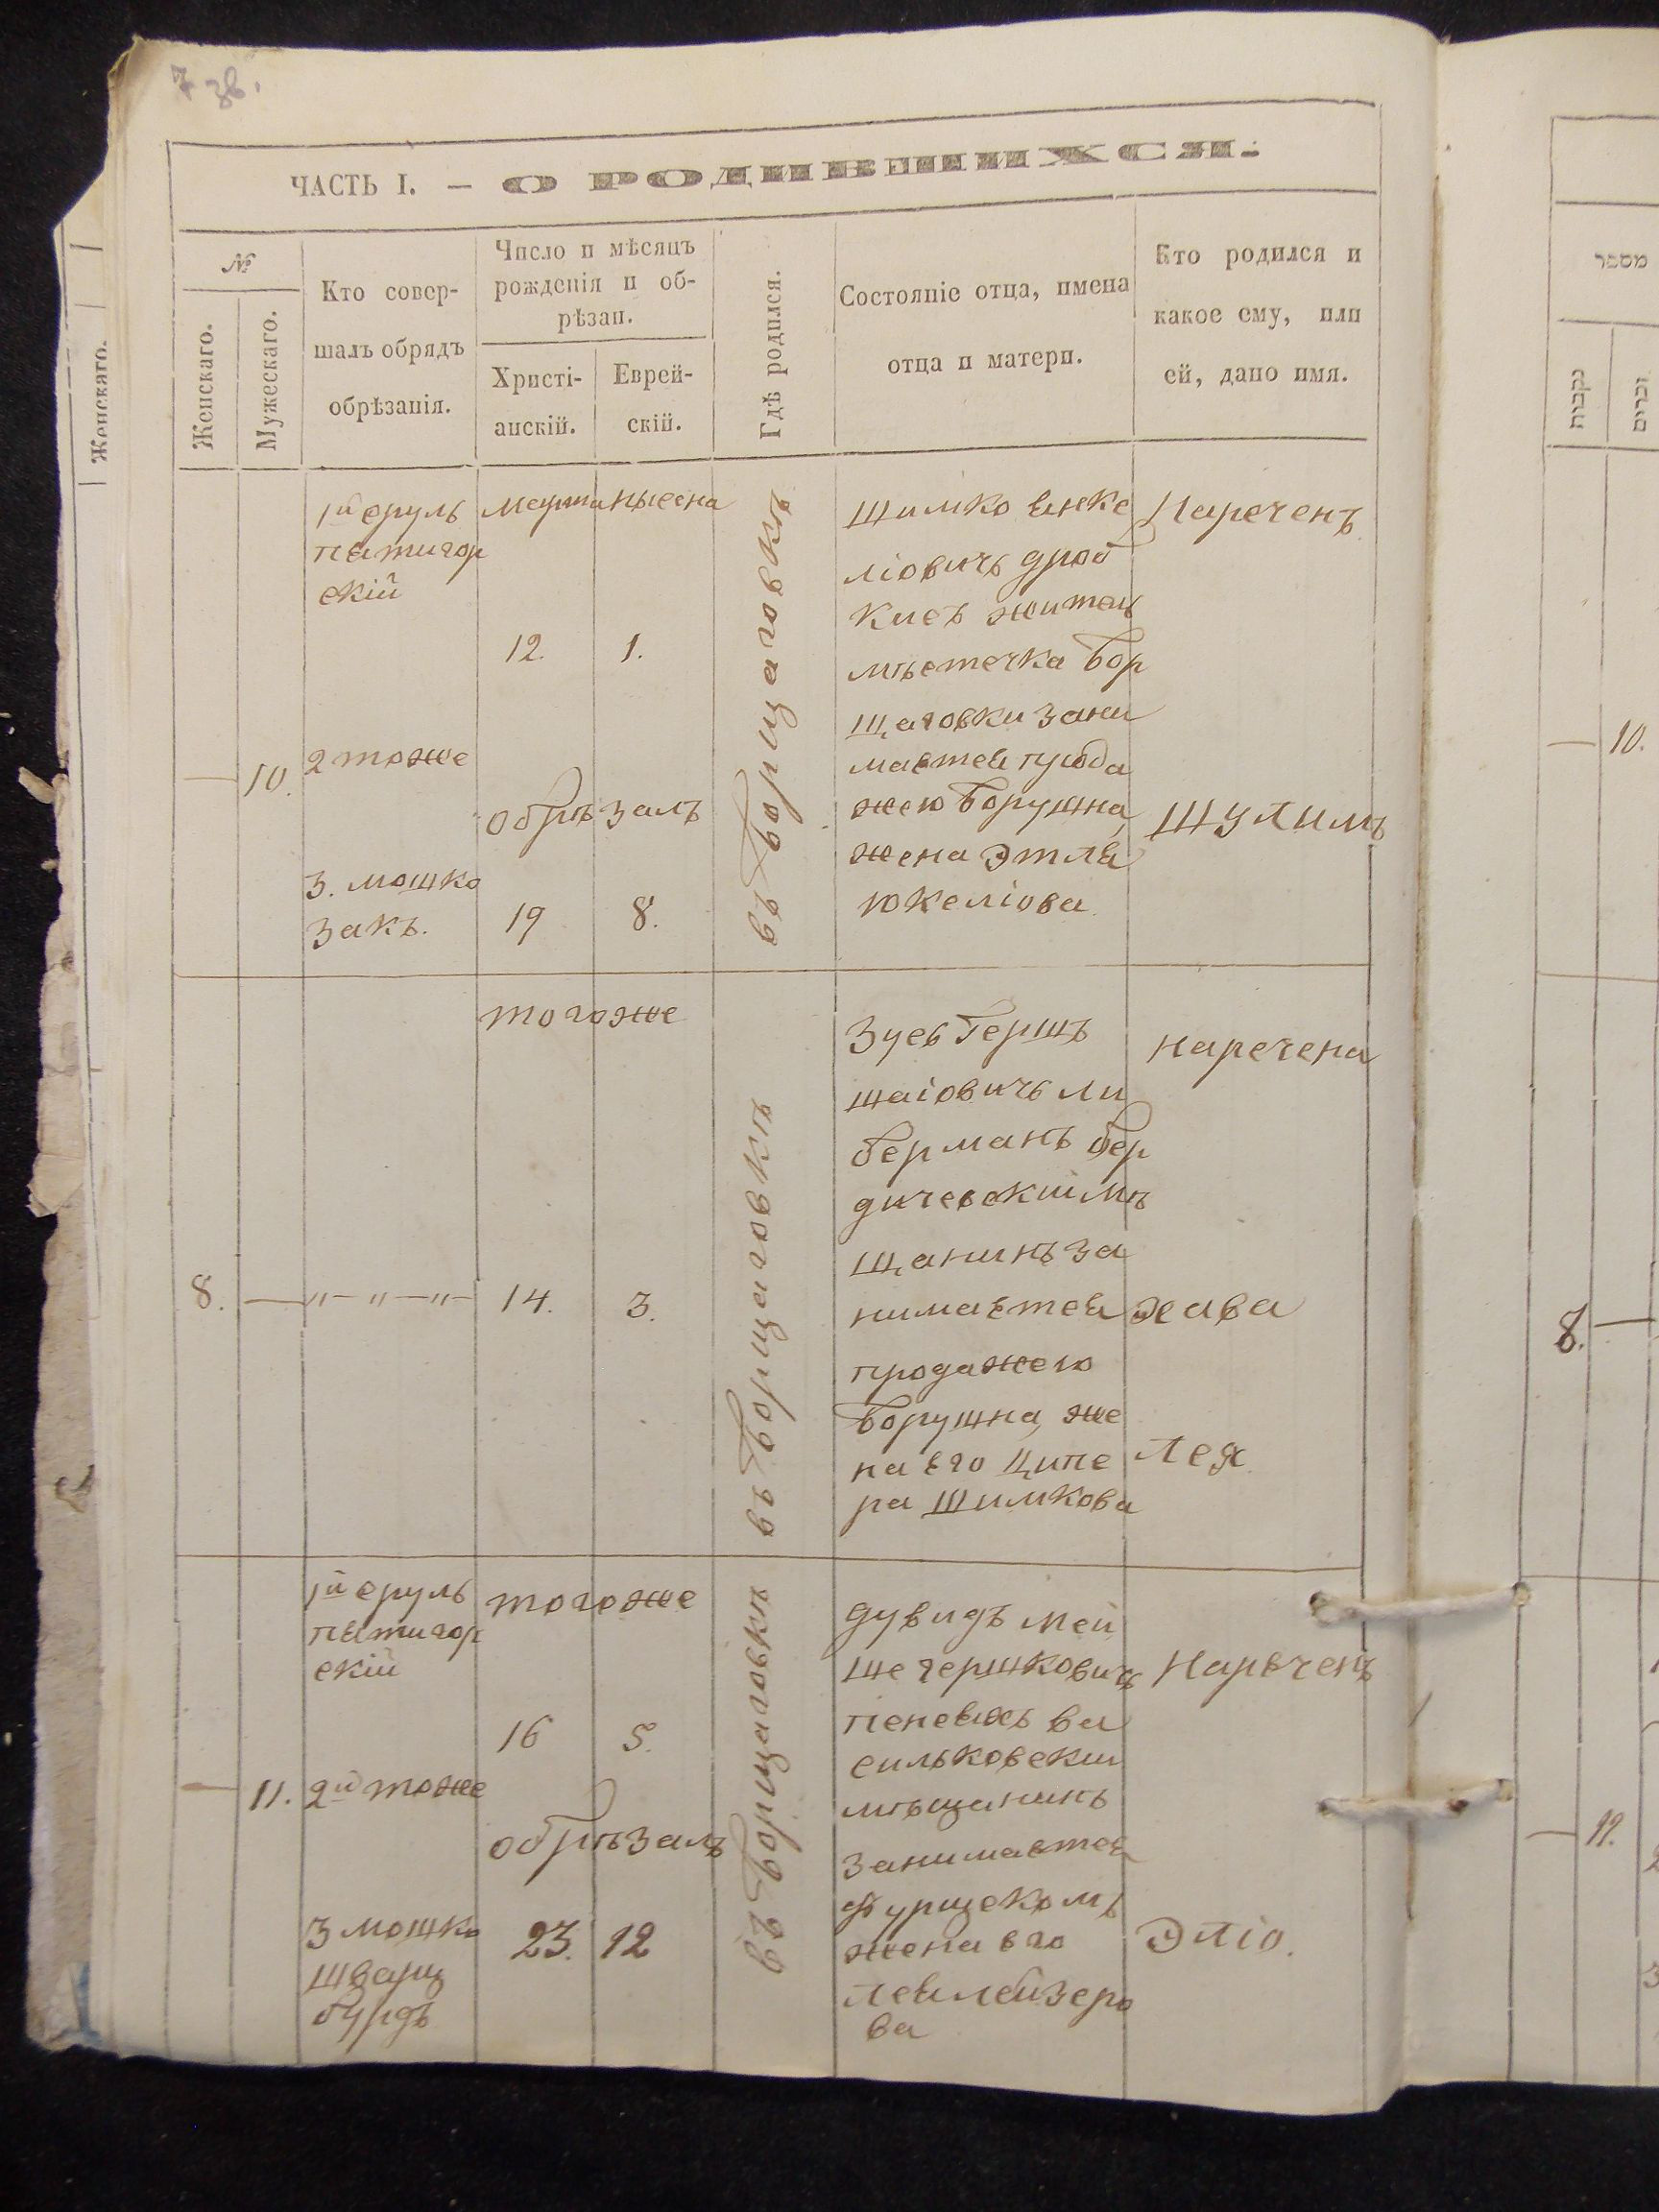 7 зв.
ЧАСТЬ I. — О РОДИВШИХСЯ.
№
Женскаго.
Мужескаго.
Кто совер-
шалъ обрядъ
обрѣзанія.
Число и мѣсяцъ
рожденія и об-
рѣзан.
Христі-
анскій.
Еврей-
скій.
Гдѣ родился.
Состояніе отца, имена
отца и матери.
Кто родился и
какое ему, или
ей, дано имя.
— 10.
1й сруль
пятигор
скій
2 тоже
3. мошко
закъ.
марта нысена
12. 1.
обрѣзалъ
19 8.
въ Борщаговкѣ
Шимко Янке
ліовичъ
житель
мѣстечка Бор
щаговки зани
мается прода
жею борушна,
жена Этля
Юкеліова
Нареченъ
ШУЛимъ
8. — „— „—„—
тогоже
14. 3.
въ Борщаговкѣ
Зусь Гершъ
шаіовичъ Ли
берманъ бер
дичевскій мѣ
щанинъ за
нимается
продажею
борушна, же
на его Ципе
ра Шимкова
наречена
хава
Лея
— 11.
1й сруль
пятигор
скій
2й тоже
3 мошко
шварц
бурдъ
тогоже
16 5.
обрѣзалъ
23. 12
въ Борщаговкѣ
дувидъ мей
ше гершковичъ
ва
сильковскій
мѣщанинъ
занимается
жена его
Лея лейзеро
ва
Нареченъ
Эліо.
Женскаго.
מספר
נקבות
זכרים
— 10.
8. —
— 11.